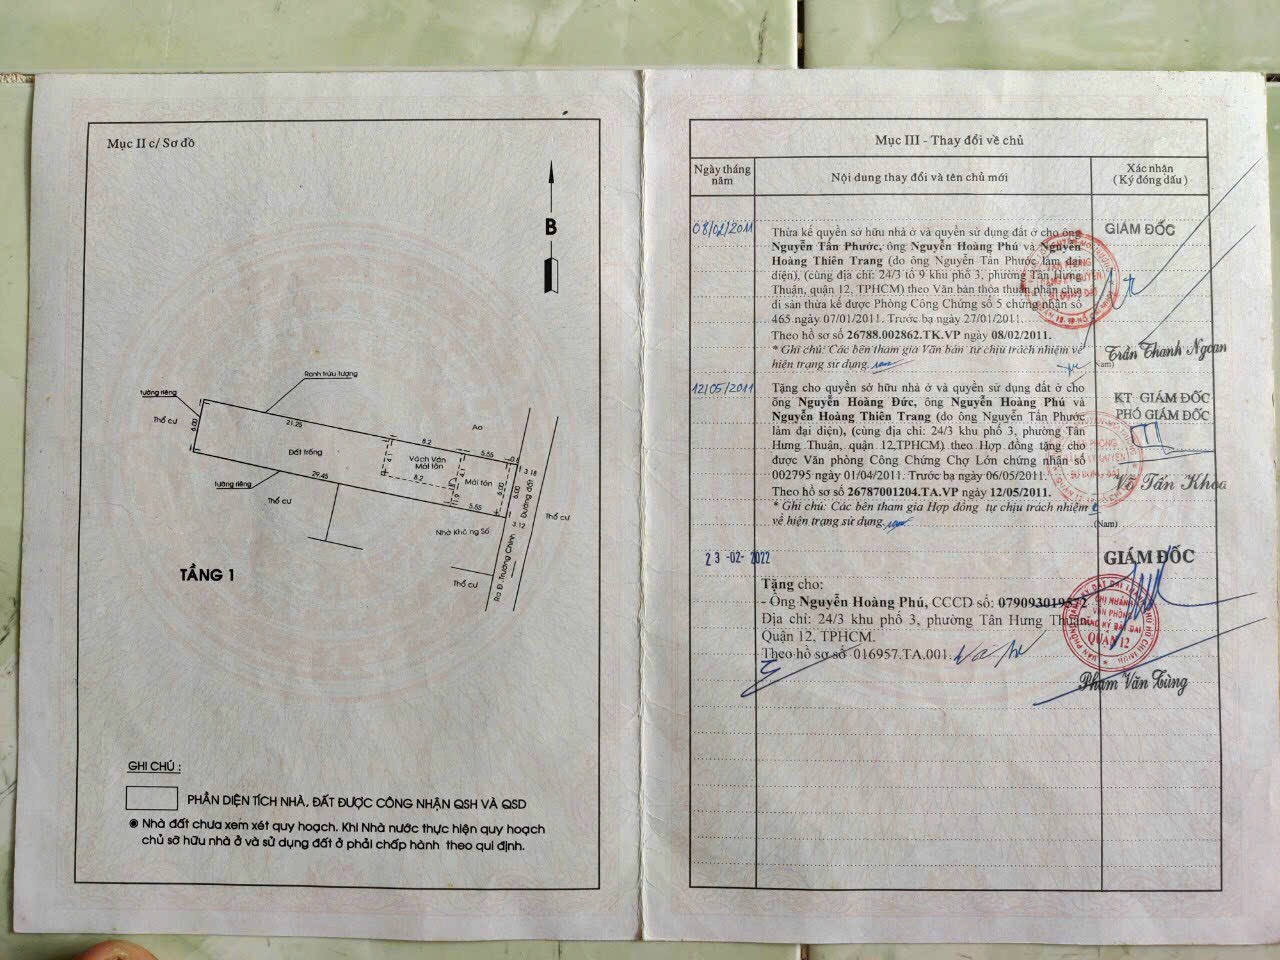 Mục II c/ Sơ đồ
B
Ranh trừu tượng
tường riêng
Thổ cư
6.00
21.25
8.2
Ao
5.55
0.6
3.18
Đất trống
4.1
Vách Ván
Mái tôn
4.1
Mái tôn
6.00
6.00
Đường đất
tường riêng
29.45
8.2
1.9
Thổ cư
Thổ cư
5.55
3.12
Nhà Không Số
Ra Đ. Trường Chinh
Thổ cư
TẦNG 1
GHI CHÚ :
PHẦN DIỆN TÍCH NHÀ, ĐẤT ĐƯỢC CÔNG NHẬN QSH VÀ QSD
Nhà đất chưa xem xét quy hoạch. Khi Nhà nước thực hiện quy hoạch
chủ sở hữu nhà ở và sử dụng đất ở phải chấp hành theo qui định.
Mục III - Thay đổi về chủ
Ngày tháng
năm
Nội dung thay đổi và tên chủ mới
Xác nhận
( Ký đóng dấu )
08/02/2011
Thừa kế quyền sở hữu nhà ở và quyền sử dụng đất ở cho ông
Nguyễn Tấn Phước, ông Nguyễn Hoàng Phú và Nguyễn
Hoàng Thiên Trang (do ông Nguyễn Tấn Phước làm đại
diện), (cùng địa chỉ: 24/3 tổ 9 khu phố 3, phường Tân Hưng
Thuận, quận 12, TPHCM) theo Văn bản thỏa thuận phân chia
di sản thừa kế được Phòng Công Chứng số 5 chứng nhận số
465 ngày 07/01/2011. Trước bạ ngày 27/01/2011.
Theo hồ sơ số 26788.002862.TK.VP ngày 08/02/2011.
* Ghi chú: Các bên tham gia Văn bản tự chịu trách nhiệm về
hiện trạng sử dụng.
GIÁM ĐỐC
Trần Thanh Ngoan
(Nam)
12/05/2011
Tặng cho quyền sở hữu nhà ở và quyền sử dụng đất ở cho
ông Nguyễn Hoàng Đức, ông Nguyễn Hoàng Phú và
Nguyễn Hoàng Thiên Trang (do ông Nguyễn Tấn Phước
làm đại diện), (cùng địa chỉ: 24/3 khu phố 3, phường Tân
Hưng Thuận, quận 12,TPHCM) theo Hợp đồng tặng cho
được Văn phòng Công Chứng Chợ Lớn chứng nhận số
002795 ngày 01/04/2011. Trước bạ ngày 06/05/2011.
Theo hồ sơ số 26787001204.TA.VP ngày 12/05/2011.
* Ghi chú: Các bên tham gia Hợp đồng tự chịu trách nhiệm
về hiện trạng sử dụng.
KT GIÁM ĐỐC
PHÓ GIÁM ĐỐC
Võ Tấn Khoa
(Nam)
23-02-2022
Tặng cho:
- Ông Nguyễn Hoàng Phú, CCCD số:
Địa chỉ: 24/3 khu phố 3, phường Tân Hưng Thuận,
Quận 12, TPHCM.
Theo hồ sơ số 016957.TA.001.
GIÁM ĐỐC
CHI NHÁNH
VĂN PHÒNG
ĐĂNG KÝ ĐẤT ĐAI
QUẬN 12
Phạm Văn Tùng